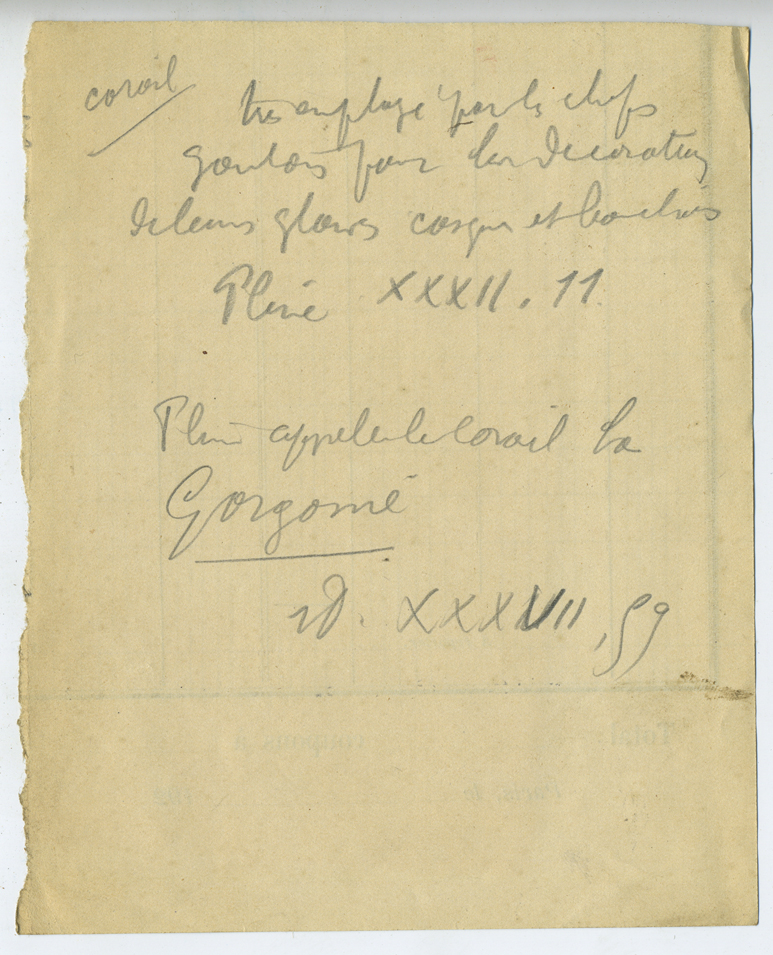 corail
très employé par les chefs
gaulois pour la décoration
de leurs glaives casques et boucliers
Pline XXXII. 11.
Pline appelle le Corail la
Gorgonie
id. XXXVII, 59
Total